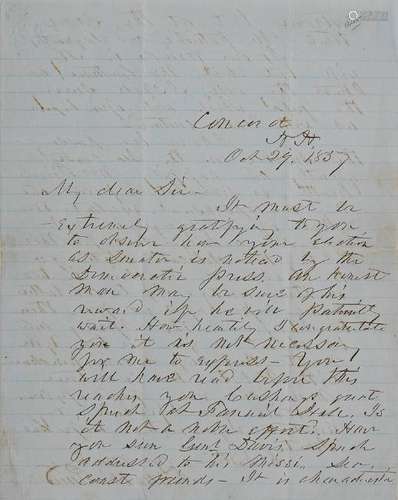 Concord
N H
Oct 29. 1857
My dear Sir -
It must be
extremely gratifying to you
to observe how your election
as Senator is noticed by the
Democratic press, an honest
man may be sure of his
reward if he will patiently
wait. How heartily I congratulate
you it is not necessary
for me to express - You
will have read before this
reaches you Cushings great
speech at Faneuil Hall. Is
it not a noble effort. Have
you seen Genl Davis' speech
addressed to his Missi. Sea
coast friends - It is characteristic